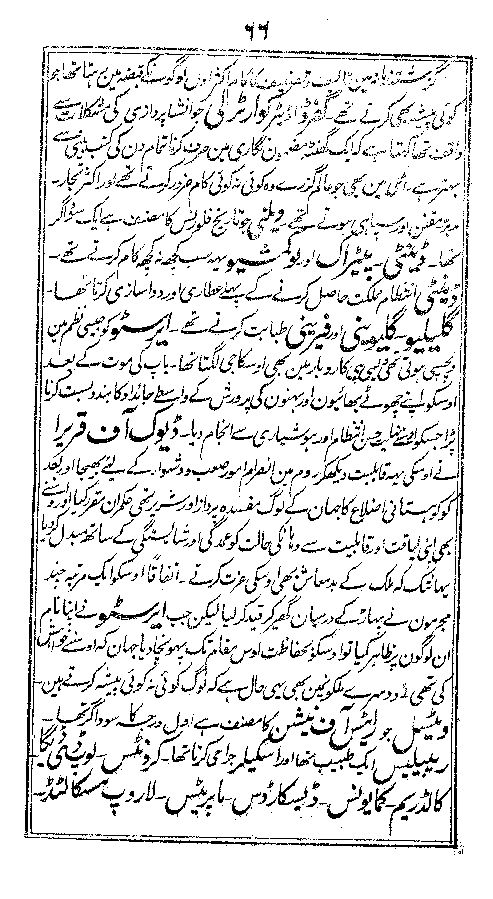 ۶۶
گزشتہ زمانہ مین تالیف و تصنیف کا کام اکثر اون لوگونکے قبضہ مین رہتا تھا جو
کوئی پیشہ بھی کرتے تھے گفرڈ اڈیٹر کوارٹرلی جو انشا پردازی کی مشکلات سے
واقف تھا کہتا ہے کہ ایک گھنٹہ مضمون نگاری مین صرف کرنا تمام دن کی کتب بینی سے
بہتر ہے ۔ اٹلی مین بھی جو عالم گزرے وہ کوئی نہ کوئی کام ضرور کرتے تھے اور اکثر تجار ۔
مدبر مقنن اور سپاہی ہوتے تھے ویلنی جو تاریخ فلورنس کا مصنف ہے ایک سوداگر
تھا ۔ ڈینٹی ۔ پیٹرارک اور بوکیشیو یہہ سب کچھ نہ کچھ کام کرتے تھے ۔
ڈینٹی انتظام مملکت حاصل کرنے کے پہلے عطاری اور دوا سازی کرتا تھا ۔
گلیلیو ۔ گلیونی اور فیرینی طبابت کرتے تھے ۔ ایرسٹو کو جیسی نظم مین
دلچسپی ہوتی تھی ایسی ہی کاروبار مین بھی اوسکا جی لگتا تھا ۔ باپ کی موت کے بعد
اوسکو اپنے چھوٹے بھائیون اور بہنون کی پرورش کے واسطے جائداد کا بندوبست کرنا
پڑا جسکو اوسنے نہایت حسن انتظام اور ہوشیاری سے انجام دیا ۔ ڈیوک آف فریرا
نے اوسکی یہہ قابلیت دیکھکر روم مین انصرام امور صعب و دشوار کے لئے بھیجا اور بعد
کو کوہستانی اضلاع کا جہان کے لوگ مفسدہ پرداز اور شریر تھی حکمران مقرر کیا اور اوسنے
بھی اپنی لیاقت اور قابلیت سے وہانکی حالت کو عمدگی اور شایستگی کے ساتھ مبدل کر دیا
یہانتک کہ ملک کے بدمعاش بھی اوسکی عزت کرتے ۔ اتفاقاً اوسکو ایک مرتبہ چند
مجرمون نے پہاڑ کے درمیان گھیر کر قید کر لیا لیکن جب ایرسٹو نے اپنا نام
ان لوگون پر ظاہر کیا تو اوسکو بحفاظت اوس مقام تک پہونچا دیا جہان کہ اوسنے خواہش
کی تھی ۔ دوسرے ملکونمین بھی یہی حال ہے کہ لوگ کوئی نہ کوئی پیشہ کرتے ہین ۔
ویٹیل جو رائٹس آف نیشن کا مصنف ہے اول درجہ کا سوداگر تھا ۔
ریبیلیس ایک طبیب تھا اور اسکیلر جراحی کرتا تھا ۔ کرونٹس ۔ لوپ ڈی ویگا
کالڈریم ۔ کمایونس ۔ ڈیسکارڈس ۔ ماپرٹیس ۔ لاروپ